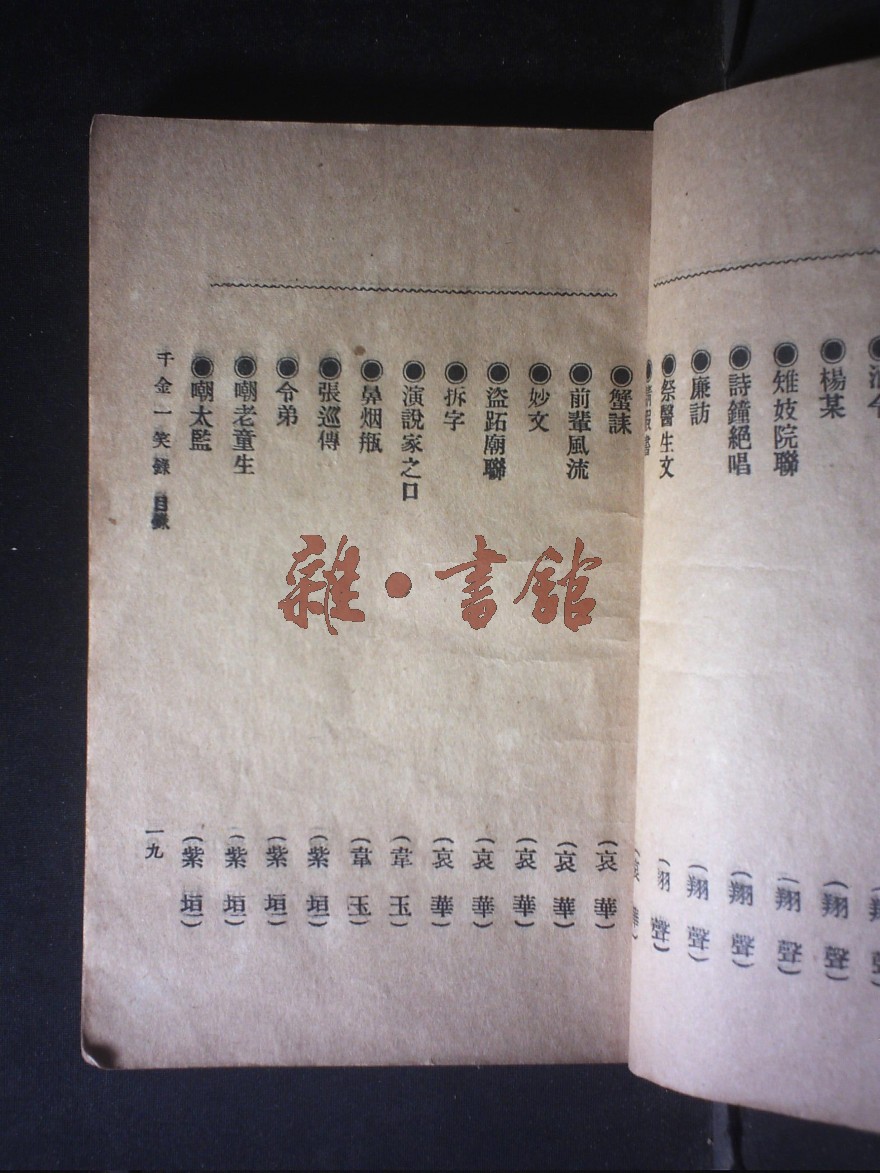 楊某
(翔聲)
雉妓院聯
(翔聲)
詩鐘絕唱
(翔聲)
廉訪
(翔聲)
祭醫生文
(翔聲)
蟹誄
(哀華)
前輩風流
(哀華)
妙文
(哀華)
盜跖廟聯
(哀華)
拆字
(哀華)
演說家之口
(韋玉)
鼻烟瓶
(韋玉)
張巡傳
(紫垣)
令弟
(紫垣)
嘲老童生
(紫垣)
嘲太監
(紫垣)
千金一笑錄 目錄
一九
雜·書館